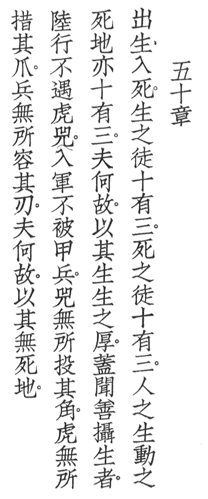 五十章
出生、入死。生之徒十有三。死之徒十有三。人之生動之
死地亦十有三。夫何故。以其生生之厚。蓋聞善攝生者。
陸行不遇虎兕。入軍不被甲兵。兕無所投其角。虎無所
措其爪。兵無所容其刃。夫何故。以其無死地。